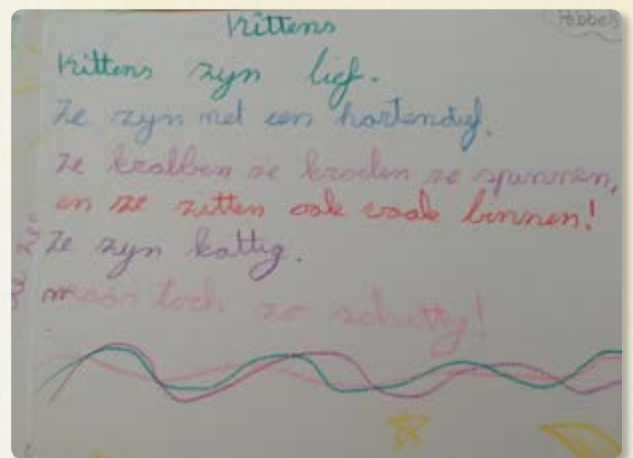 Kittens
Kittens zyn lief.
Ze zyn net een hartendief.
Ze krabben ze kroelen ze spinnen,
en ze zitten ook vaak binnen!
Ze zyn kattig.
maar toch zo schattig!